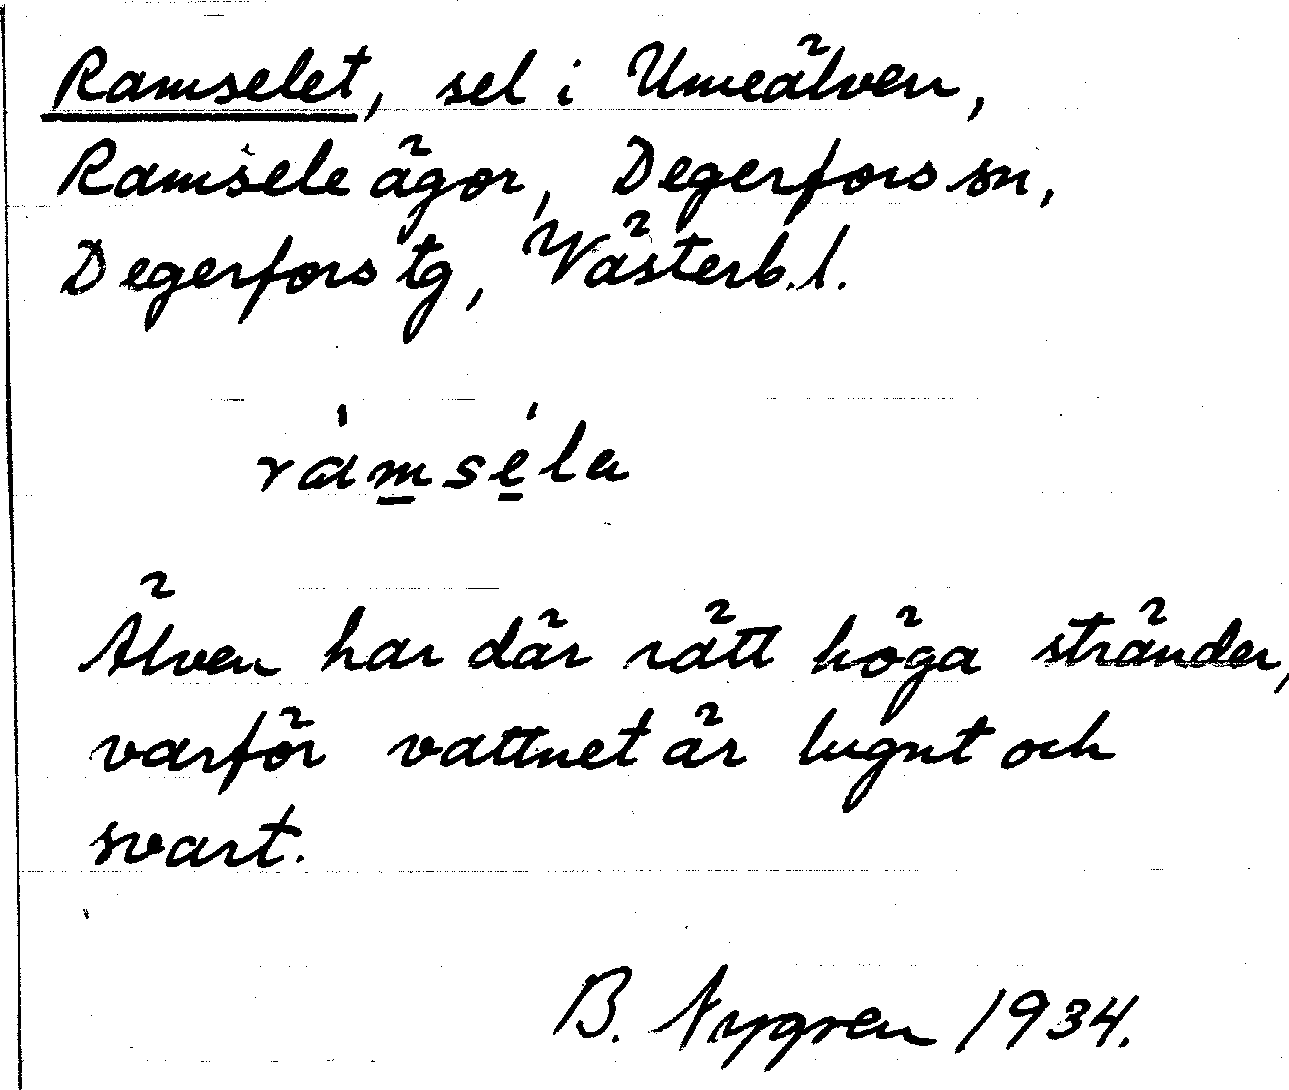 Ramselet, sel i Umeälven,
Ramsele ägor, Degerfors sn,
Degerfors tg, Västerb.l.
ràmséla
Älven har där rätt höga stränder,
varför vattnet är lugnt och
svart.
B. Nygren 1934.